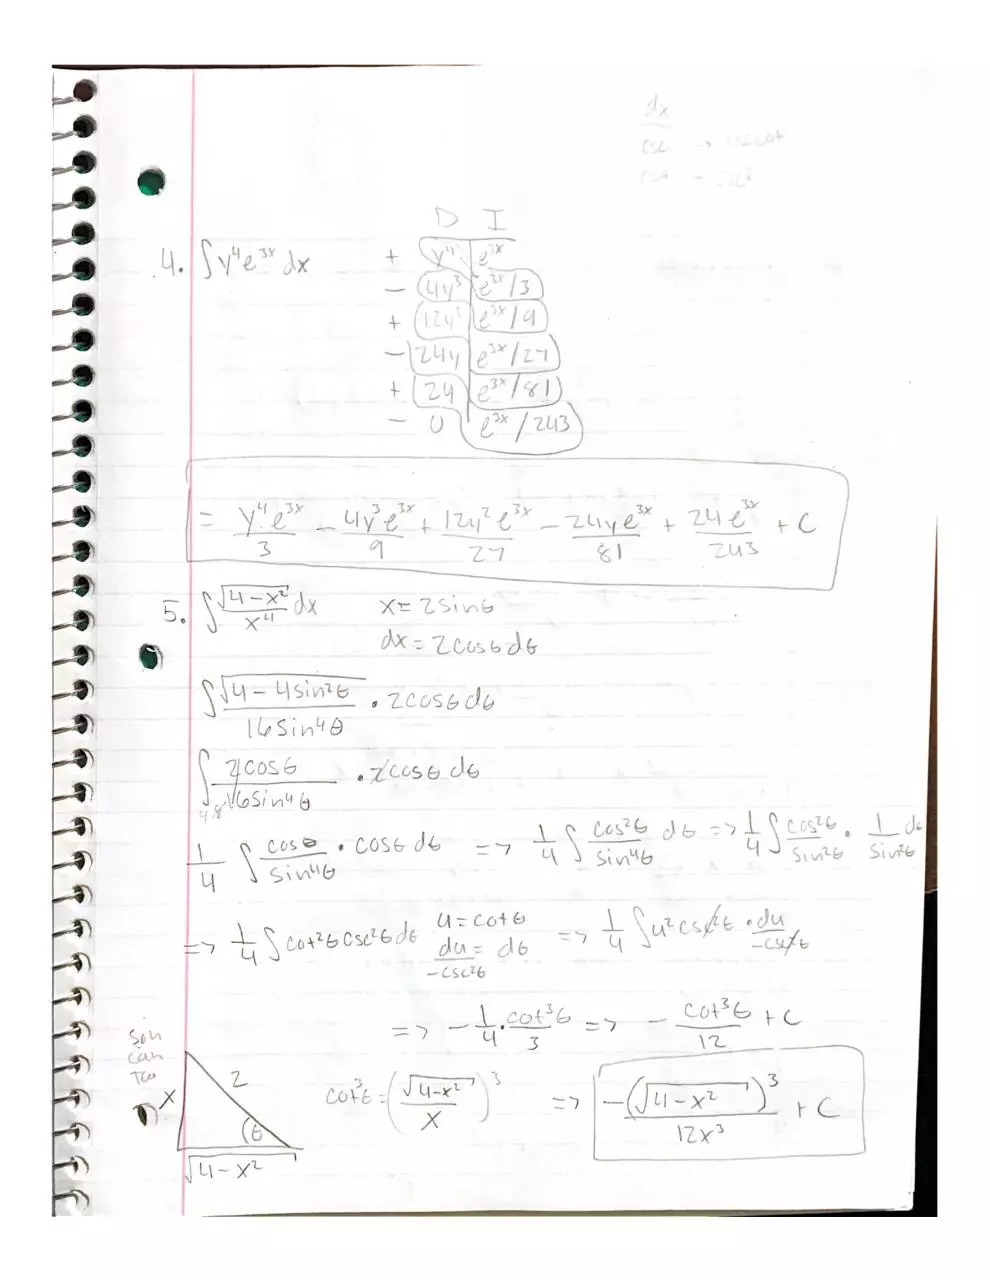 dx
csc → csccot
cot - csc²
D I
4. ∫y⁴e³ˣ dx + y⁴ e³ˣ
- 4y³ e³ˣ/3
+ 12y² e³ˣ/9
- 24y e³ˣ/27
+ 24 e³ˣ/81
- 0 e³ˣ/243
= y⁴e³ˣ/3 - 4y³e³ˣ/9 + 12y²e³ˣ/27 - 24ye³ˣ/81 + 24e³ˣ/243 + C
5. ∫ √(4-x²)/x⁴ dx x = 2sinθ
dx = 2cosθdθ
∫ √(4-4sin²θ)/16sin⁴θ · 2cosθdθ
∫ 2cosθ/16sin⁴θ · 2cosθ dθ
4 8
1/4 ∫ cosθ/sin⁴θ · cosθ dθ => 1/4 ∫ cos²θ/sin⁴θ dθ => 1/4 ∫ cos²θ/sin²θ · 1/sin²θ dθ
=> 1/4 ∫ cot²θ csc²θ dθ u = cotθ du/-csc²θ = dθ => 1/4 ∫ u² csc²θ · du/-csc²θ
=> -1/4 · cot³θ/3 => - cot³θ/12 + C
soh
cah
toa
x 2 θ √(4-x²)
cot³θ = (√(4-x²)/x)³ => -(√(4-x²))³/12x³ + C